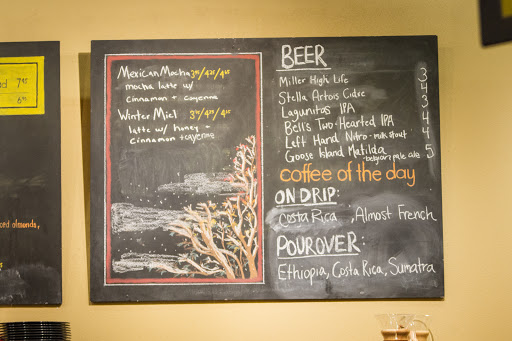 ad 7 45
6 95
ced almonds,
Mexican Mocha 3 95/4 25/4 65
mocha latte w/
cinnamon + cayenne
Winter Miel
latte w/ honey +
cinnamon + cayenne
BEER
Miller High Life 3
Stella Artois Cidre 4
Lagunitas IPA 3
Bell's Two-Hearted IPA 4
Left Hand Nitro - milk stout 4
Goose Island Matilda - belgian pale ale 5
coffee of the day
ON DRIP:
Costa Rica , Almost French
POUROVER:
Ethiopia, Costa Rica, Sumatra